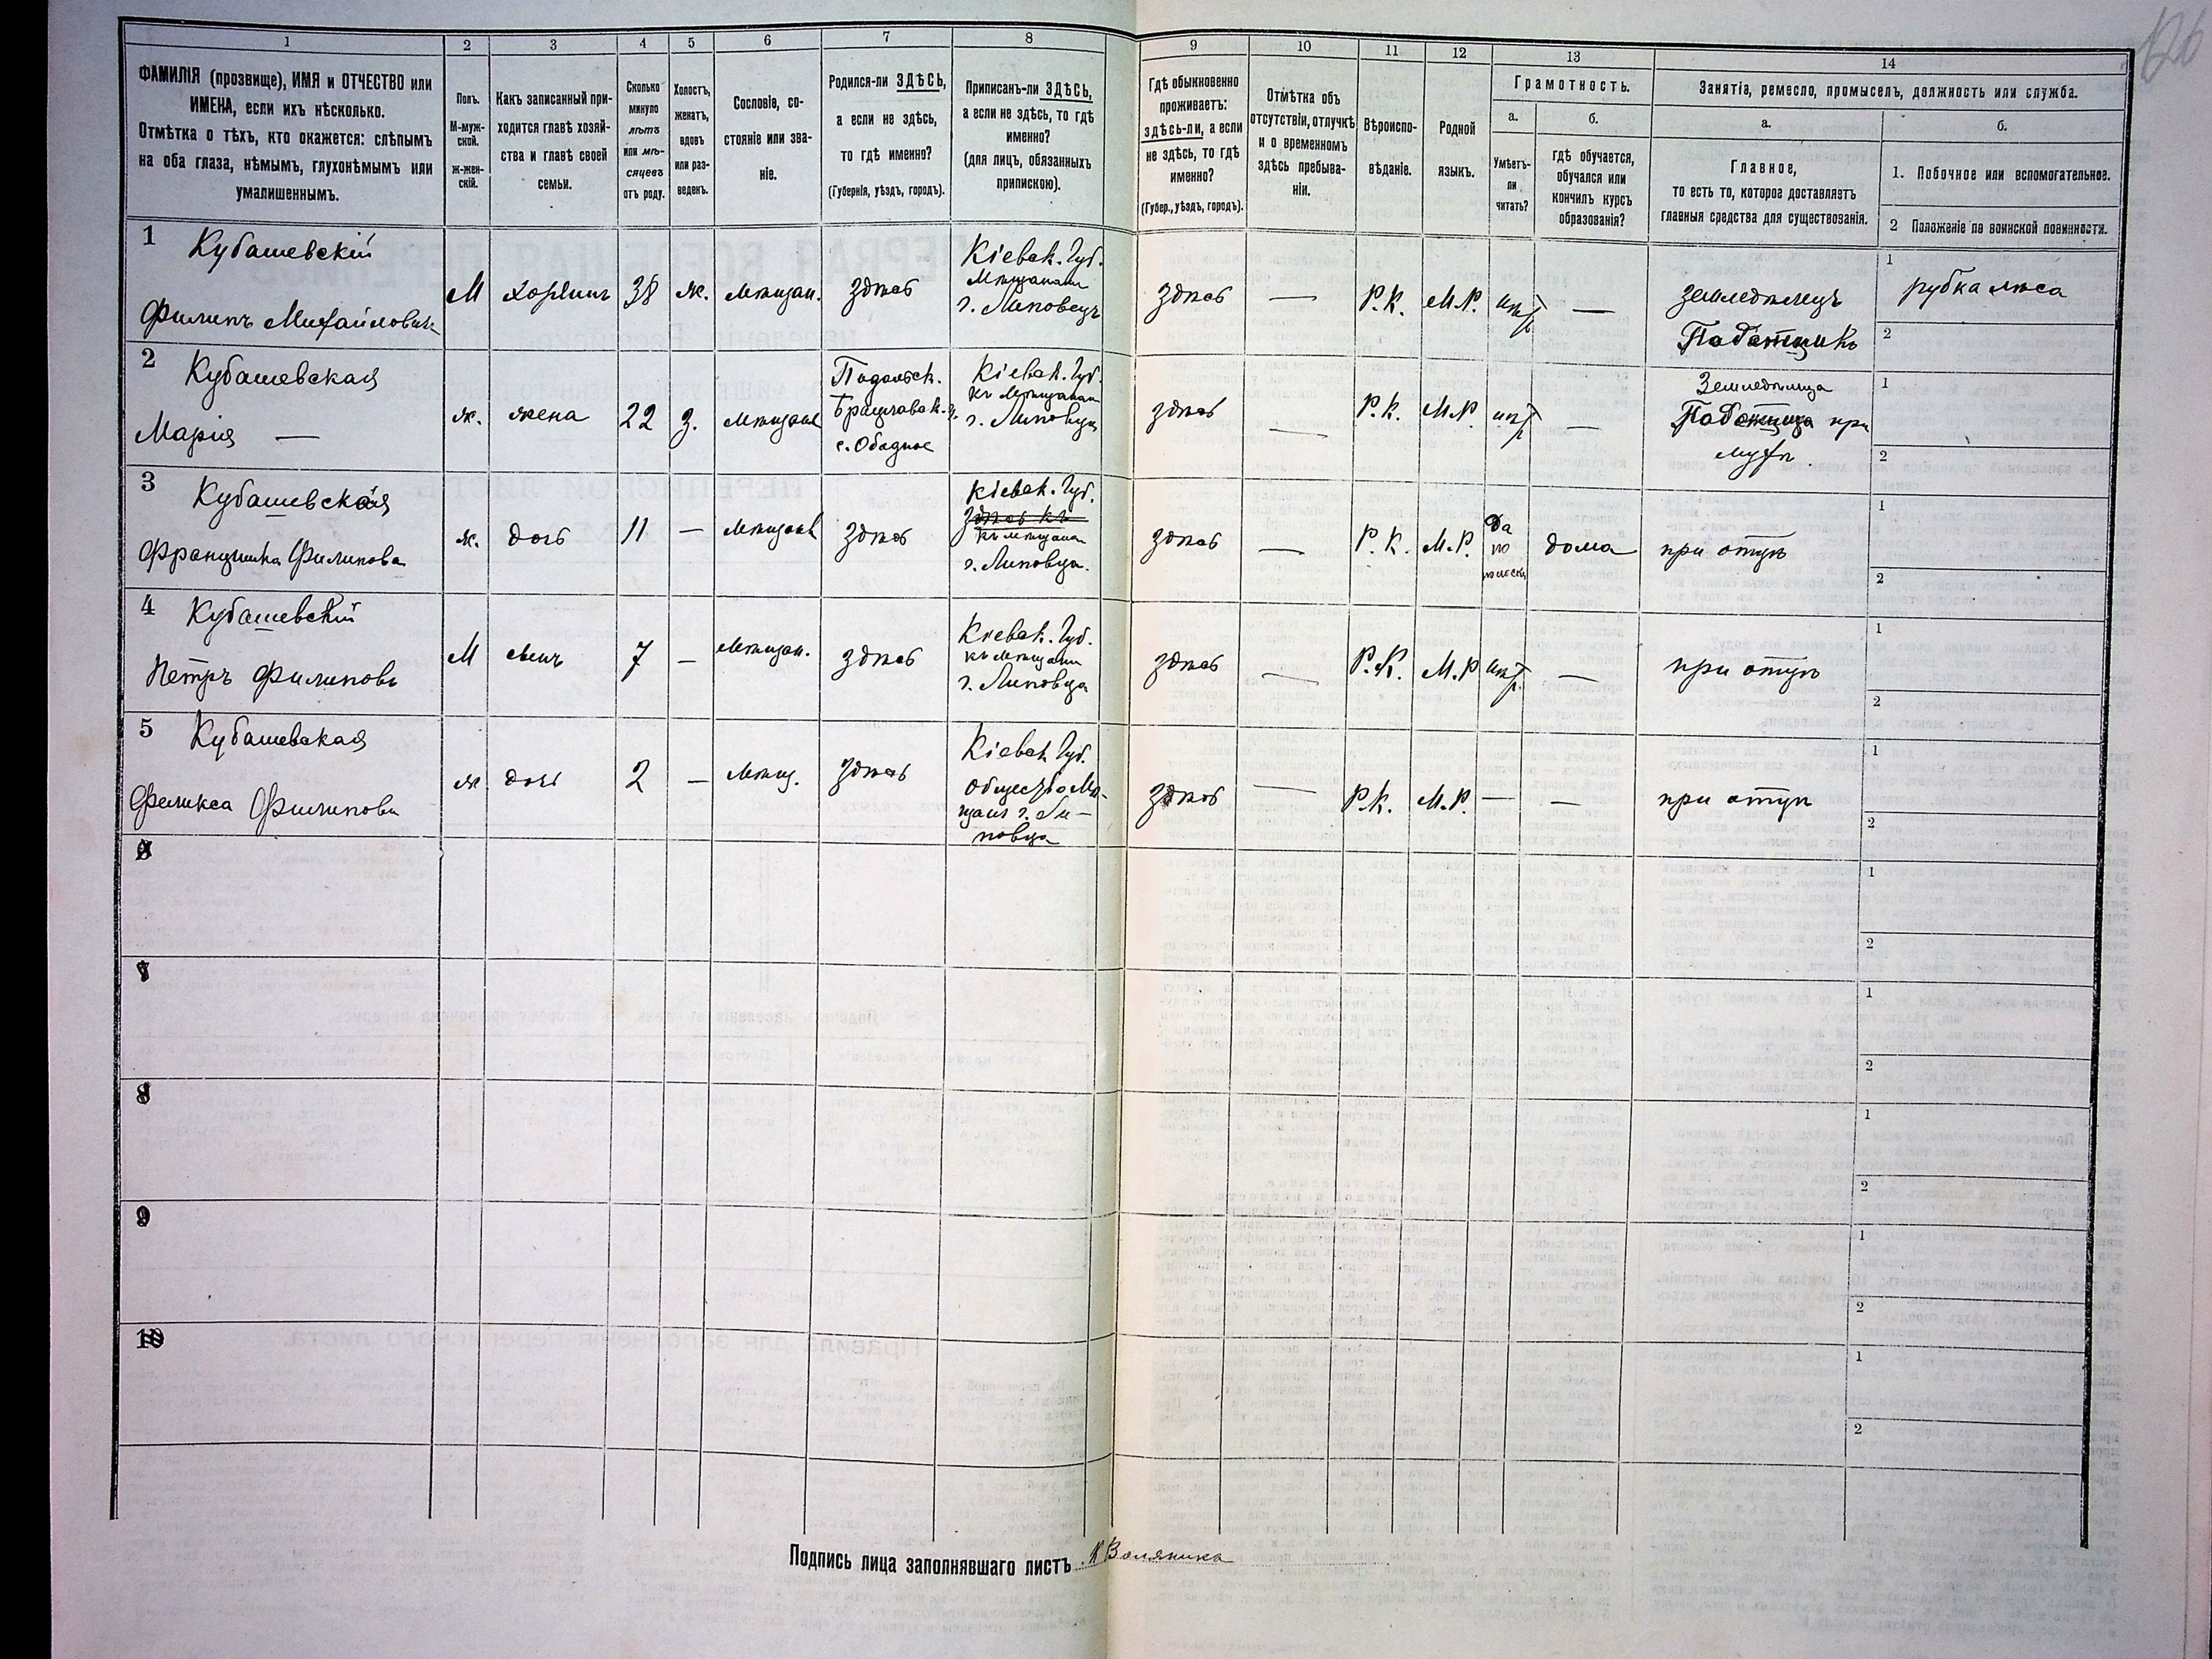 126
1 2 3 4 5 6 7 8 9 10 11 12 13 14
ФАМИЛІЯ (прозвище), ИМЯ и ОТЧЕСТВО или
ИМЕНА, если ихъ нѣсколько.
Отмѣтка о тѣхъ, кто окажется: слѣпымъ
на оба глаза, нѣмымъ, глухонѣмымъ или
умалишеннымъ.
Полъ.
М-муж-
ской.
Ж-жен-
скій.
Какъ записанный при-
ходится главѣ хозяй-
ства и главѣ своей
семьи.
Сколько
минуло
лѣтъ
или мѣ-
сяцевъ
отъ роду.
Холостъ,
женатъ,
вдовъ
или раз-
веденъ.
Сословіе, со-
стояніе или зва-
ніе.
Родился-ли ЗДѢСЬ,
а если не здѣсь,
то гдѣ именно?
(Губернія, уѣздъ, городъ).
Приписанъ-ли ЗДѢСЬ,
а если не здѣсь, то гдѣ
именно?
(для лицъ, обязанныхъ
припискою).
Гдѣ обыкновенно
проживаетъ:
здѣсь-ли, а если
не здѣсь, то гдѣ
именно?
(Губер., уѣздъ, городъ).
Отмѣтка объ
отсутствіи, отлучкѣ
и о временномъ
здѣсь пребыва-
ніи.
Вѣроиспо-
вѣданіе.
Родной
языкъ.
Грамотность.
а.
Умѣетъ-
ли
читать?
б.
гдѣ обучается,
обучался или
кончилъ курсъ
образованія?
Занятія, ремесло, промыселъ, должность или служба.
а.
Главное,
то есть то, которое доставляетъ
главныя средства для существованія.
б.
1. Побочное или вспомогательное.
2 Положеніе по воинской повинности.
1
Кубашевскій
Филипъ Михайловичъ
М
хозяинъ
38
ж.
Мѣщан.
здѣсь
Кіевск. Губ.
Мѣщанами
г. Липовецъ
здѣсь
—
Р.К.
М.Р.
нѣт
—
земледѣлецъ
1
рубка лѣса
2
2
Кубашевская
Марія —
ж.
жена
22
з.
Мѣщанк
Подольск.
Брацлавск. у.
с. Ободное
Кіевск. Губ.
къ Мѣщанам
г. Липовца
здѣсь
—
Р.К.
М.Р.
нѣт
—
Земледѣлица
при
мужѣ.
1
2
3
Кубашевская
Францишка Филипова
ж.
дочь
11
—
Мѣщанк
здѣсь
Кіевск. Губ.
здѣсь къ
къ мѣщанам
г. Липовца.
здѣсь
—
Р.К.
М.Р.
Да
по
польски
дома
при отцѣ
1
2
4
Кубашевскій
Петръ Филиповъ
М
сынъ
7
—
Мѣщан.
здѣсь
Кіевск. Губ.
къ Мѣщанам
г. Липовца
здѣсь
—
Р.К.
М.Р
нѣт
—
при отцѣ
1
2
5
Кубашевская
Феликса Филипова
ж
дочь
2
—
Мѣщ.
здѣсь
Кіевск. Губ.
общество Мѣ-
щанъ г. Ли-
повца
здѣсь
—
Р.К.
М.Р.
—
—
при отцѣ
1
2
6
1
2
7
1
2
8
1
2
9
1
2
10
1
2
Подпись лица заполнявшаго листъ